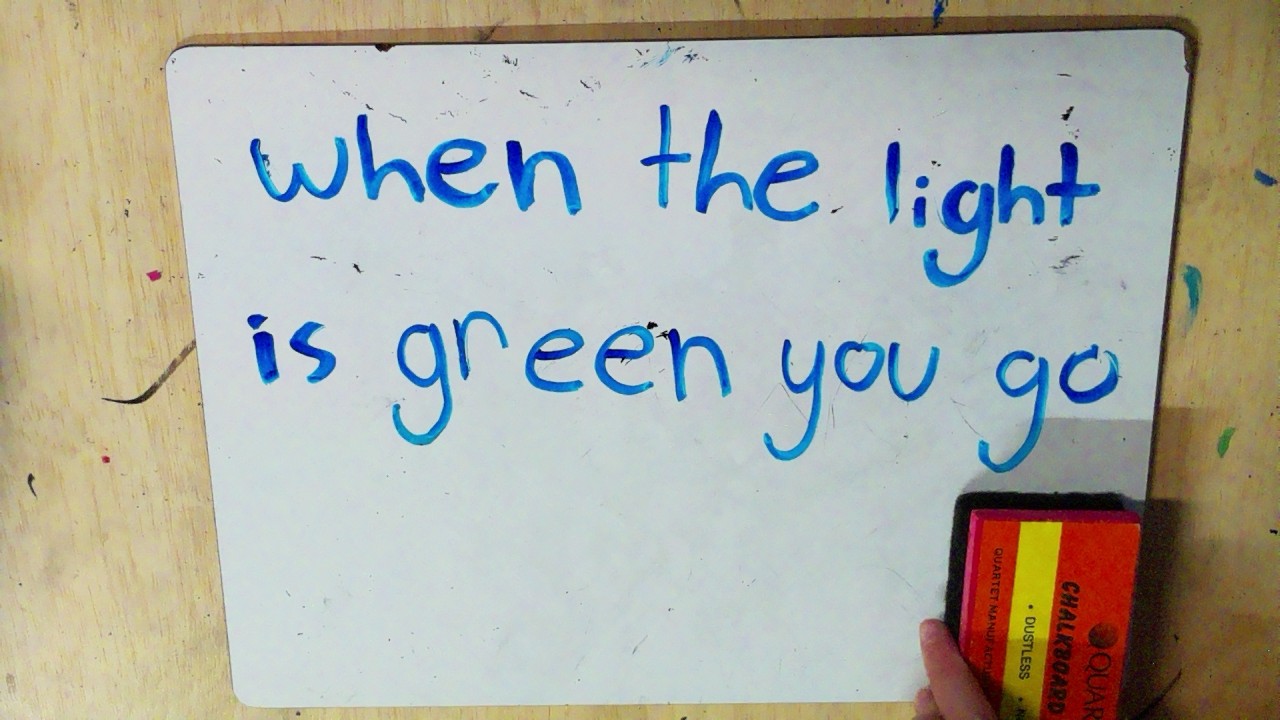 when the light
is green you go
QUAR
CHALKBOARD
• DUSTLESS •
QUARTET MANUFACTU